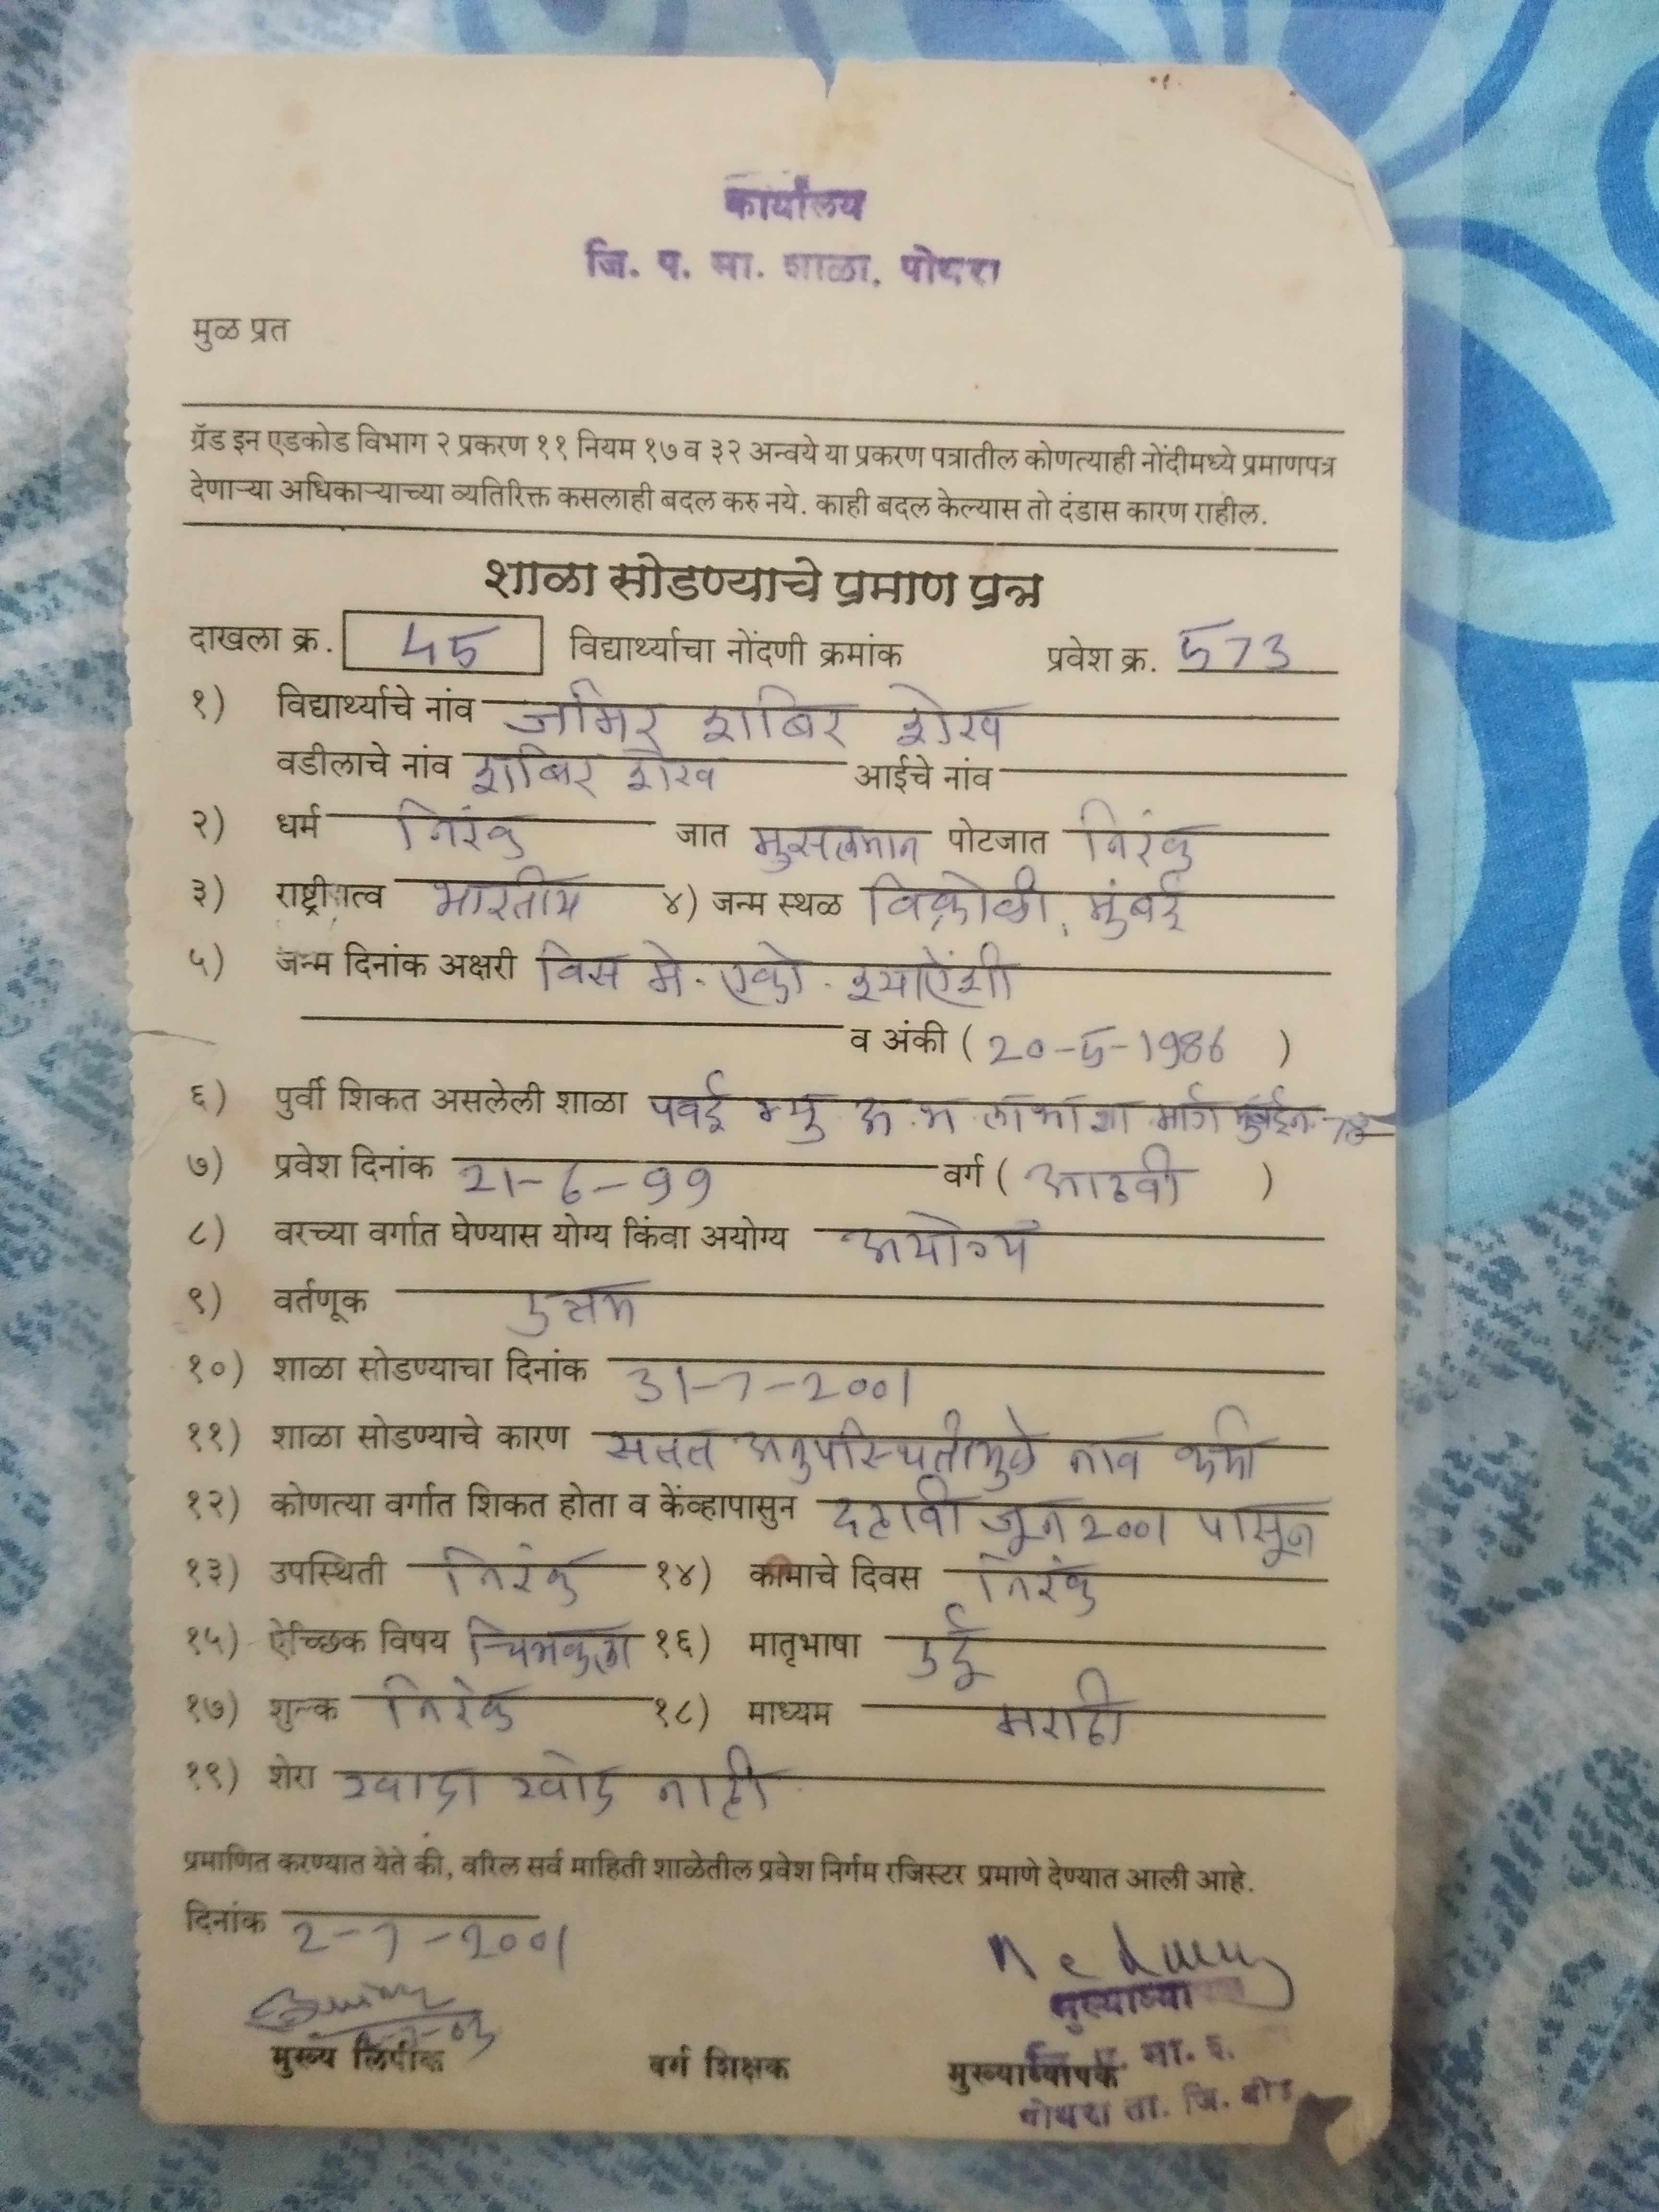 कार्यालय
जि. प. मा. शाळा, पोथरा
मुळ प्रत
ग्रॅड इन एडकोड विभाग २ प्रकरण ११ नियम १७ व ३२ अन्वये या प्रकरण पत्रातील कोणत्याही नोंदीमध्ये प्रमाणपत्र
देणाऱ्या अधिकाऱ्याच्या व्यतिरिक्त कसलाही बदल करु नये. काही बदल केल्यास तो दंडास कारण राहील.
शाळा सोडण्याचे प्रमाण पत्र
दाखला क्र. 45 विद्यार्थ्याचा नोंदणी क्रमांक प्रवेश क्र. 573
१) विद्यार्थ्याचे नांव जमिर शाबिर शेख
वडीलाचे नांव शाबिर शेख आईचे नांव
२) धर्म निरंक जात मुसलमान पोटजात निरंक
३) राष्ट्रीयत्व भारतीय ४) जन्म स्थळ विक्रोळी, मुंबई
५) जन्म दिनांक अक्षरी विस मे. एको. श्याऐंशी
व अंकी ( 20-5-1986 )
६) पुर्वी शिकत असलेली शाळा पवई म्यु मार्ग मुंबई 78
७) प्रवेश दिनांक 21-6-99 वर्ग ( आठवी )
८) वरच्या वर्गात घेण्यास योग्य किंवा अयोग्य अयोग्य
९) वर्तणूक उत्तम
१०) शाळा सोडण्याचा दिनांक 31-7-2001
११) शाळा सोडण्याचे कारण सतत अनुपस्थितीमुळे नाव कमी
१२) कोणत्या वर्गात शिकत होता व केंव्हापासुन दहावी जून 2001 पासून
१३) उपस्थिती निरंक १४) कामाचे दिवस निरंक
१५) ऐच्छिक विषय चित्रकला १६) मातृभाषा उर्दू
१७) शुल्क निरंक १८) माध्यम मराठी
१९) शेरा खाडा खोड नाही
प्रमाणित करण्यात येते की, वरिल सर्व माहिती शाळेतील प्रवेश निर्गम रजिस्टर प्रमाणे देण्यात आली आहे.
दिनांक 2-7-2001
मुख्याध्या
मुख्य लिपीक वर्ग शिक्षक मुख्याध्यापक
पोथरा ता. जि. बीड